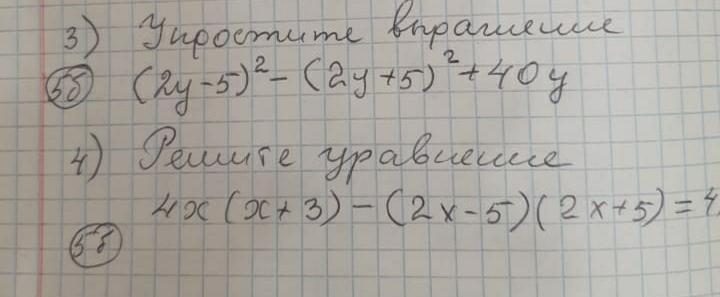 3) Упростите выражение
5б (2y-5)² - (2y+5)² + 40y
4) Решите уравнение
4x(x+3) - (2x-5)(2x+5) = 4
5б